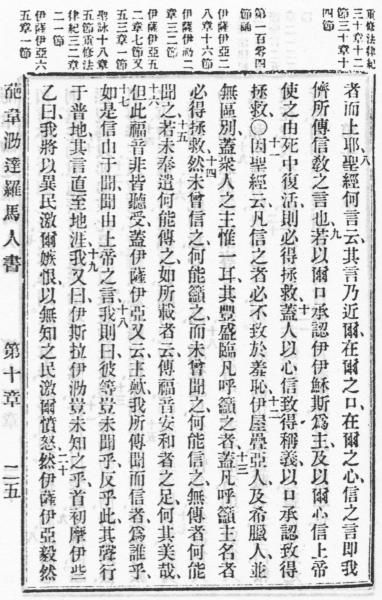 重修法律紀
三十章十二
節三十章十
四節
第一百零四
節誦
伊薩伊亞二
八章十六節
章三二節
伊薩伊亞五
二章七節又
五三章一節
聖詠十八章
五節重修法
律紀三二章
二一節
伊薩伊亞六
五章一節
者而上耶聖經何言云其言乃近爾在爾之口在爾之心信之言即我
儕所傳信教之言也若以爾口承認伊伊穌斯爲主及以爾心信上帝
使之由死中復活則必得拯救蓋人以心信致得稱義以口承認致得
拯救〇因聖經云凡信之者必不致於羞恥伊屋疊亞人及希臘人並
無區別蓋衆人之主惟一耳其豐盛臨凡呼籲之者蓋凡呼籲主名者
必得拯救然未曾信之何能籲之而未曾聞之何能信之無傳者何能
聞之若未奉遣何能傳之如所載者云傳福音安和者之足何其美哉
但此福音非皆聽受蓋伊薩伊亞又云主歟我所傳聞而信者爲誰乎
如是信由于聞聞由上帝之言我則曰彼等豈未聞乎反乎此其聲行
于普地其言直至地涯我又曰伊斯拉伊泐豈未知之乎首初摩伊些
乙曰我將以異民激爾嫉恨以無知之民激爾憤怒然伊薩伊亞毅然
葩韋泐達羅馬人書 第十章 二五